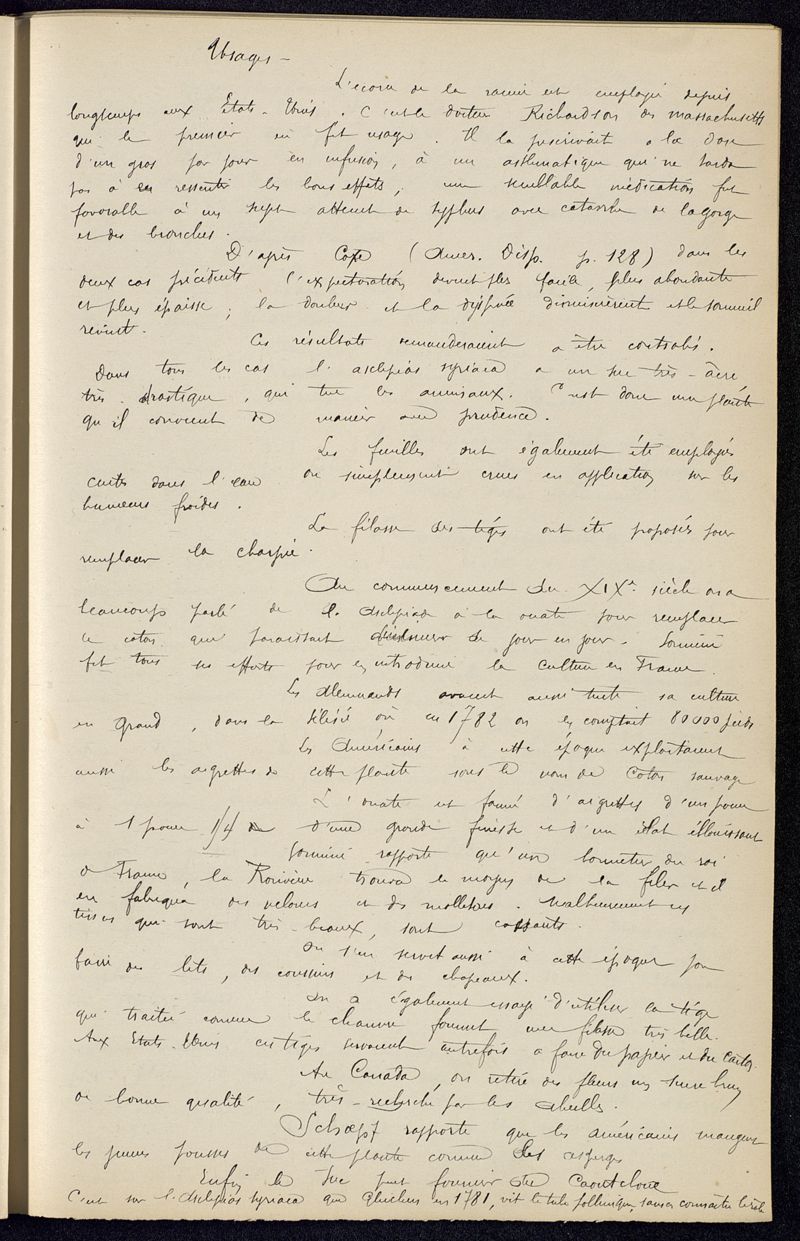 Usages -
L'écorce de la racine est employée depuis
longtemps aux Etats-Unis. C'est le docteur Richardson du Massachusetts
qui le premier en fit usage. Il la prescrivait à la dose
d'un gros par jour en infusion, à un asthmatique qui ne tarda
pas à en ressentir les bons effets; une semblable médication fut
favorable à un sujet atteint de typhus avec catarrhe de la gorge
et des bronches.
D'après Coxe (Amer. Disp. p. 128) dans les
deux cas précédents l'expectoration devint plus facile, plus abondante
et plus épaisse; la douleur et la dyspnée diminuèrent et le sommeil
revint.
Ces résultats demanderaient à être controlés.
Dans tous les cas l'asclepias syriaca a un suc très-âcre
très-drastique, qui tue les animaux. C'est donc une plante
qu'il convient de manier avec prudence.
Les feuilles ont également été employées
cuites dans l'eau ou simplement crues en application sur les
humeurs froides.
La filasse des tiges ont été proposés pour
remplacer la charpie.
Au commencement du XIXe siècle on a
beaucoup parlé de l'asclépiade à la ouate pour remplacer
le coton qui paraissait diminuer de jour en jour. Sonnini
fit tous ses efforts pour en introduire la culture en France.
Les Allemands avaient aussi tenté sa culture
en grand, dans la Silésie où en 1782 on en comptait 80000 pieds
Les Américains à cette époque exploitaient
aussi les aigrettes de cette plante sous le nom de Coton sauvage
L'ouate est formé d'aigrettes d'un pouce
à 1 pouce 1/4 d'une grande finesse et d'un éclat éblouissant
Sonnini rapporte qu'un bonnetier du roi
de France, la Rouvière trouva le moyen de la filer et il
en fabriqua des velours et des molletons. Malheureusement ces
tissus qui sont très-beaux, sont cassants.
On s'en servit aussi à cette époque pour
faire des lits, des coussins et des chapeaux.
On a également essayé d'utiliser la tige
qui traitée comme le chanvre fournit une filasse très belle.
Aux Etats-Unis ces tiges servaient autrefois à faire du papier et du carton.
Au Canada, on retire des fleurs un sucre brun
de bonne qualité, très-recherché par les abeilles.
Schoepf rapporte que les américains mangent
les jeunes pousses de cette plante comme des asperges
Enfin le suc peut fournir du Caoutchouc
C'est sur l'Asclepias syriaca que en 1781, vit le tube pollinique, sans connaître le rôle